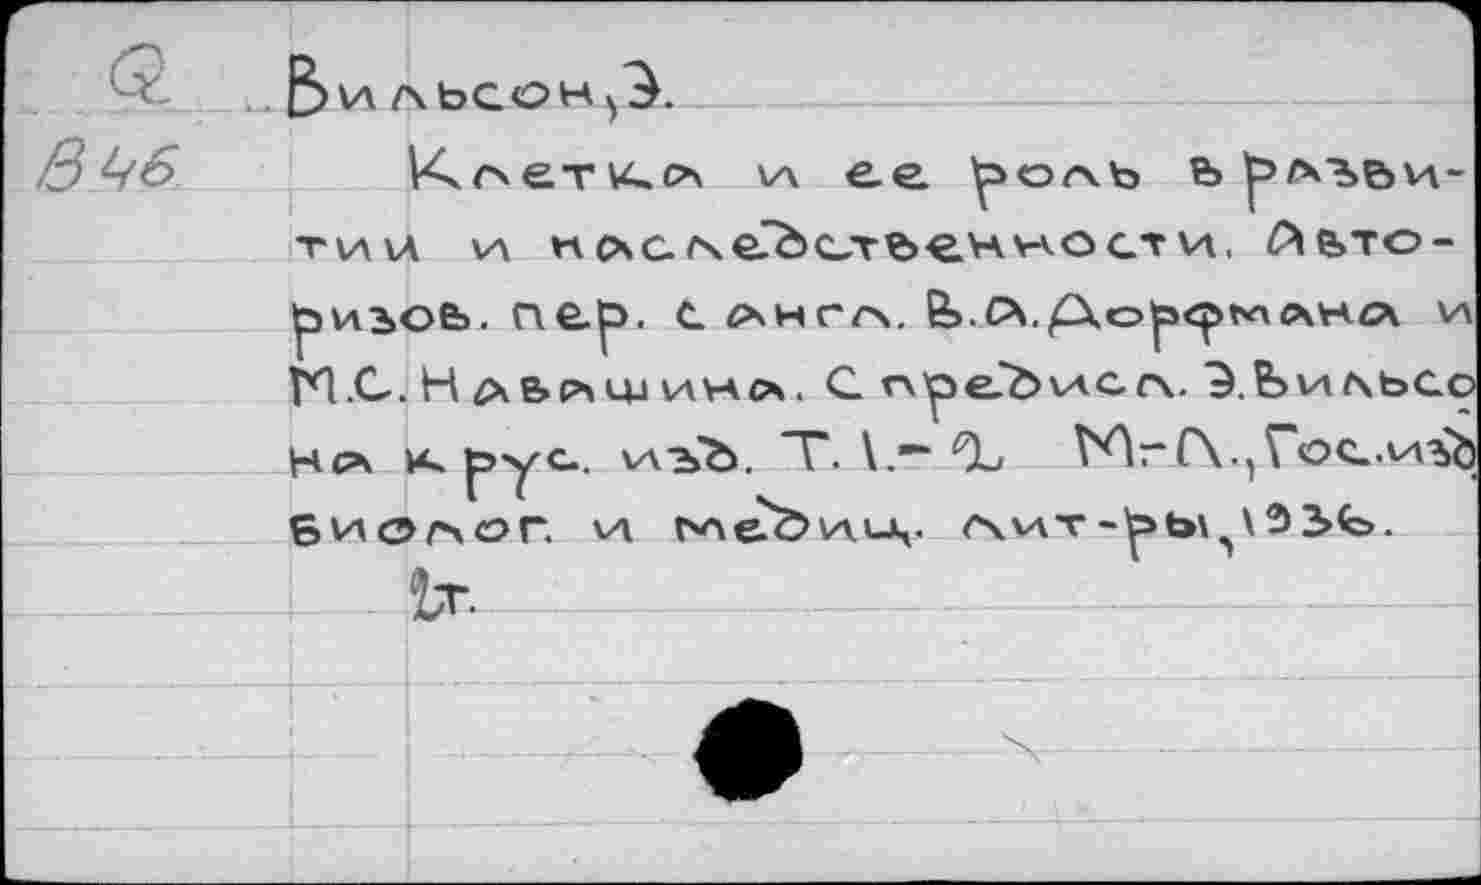 Q Вильсон, Э.
В46 Клетка и ее роль в разви-
тии и наследственности. Авто-
ризов. пер. с англ. В.А. Дорфмана и
М.С. Навашина. С предисл. Э. Вильсо
на к рус. изд. Т. 1.-2 М-Л., Гос. изд
биолог. и медиц. лит-ры,
2т.